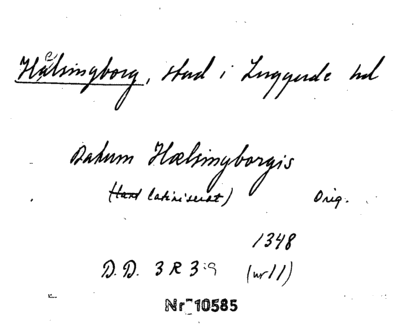 Hälsingborg, stad i Luggude hd
Datum Hælsingborgis
(latiniserat) Orig.
1348
D.D. 3 R 3:9 (nr 11)
Nr 10585